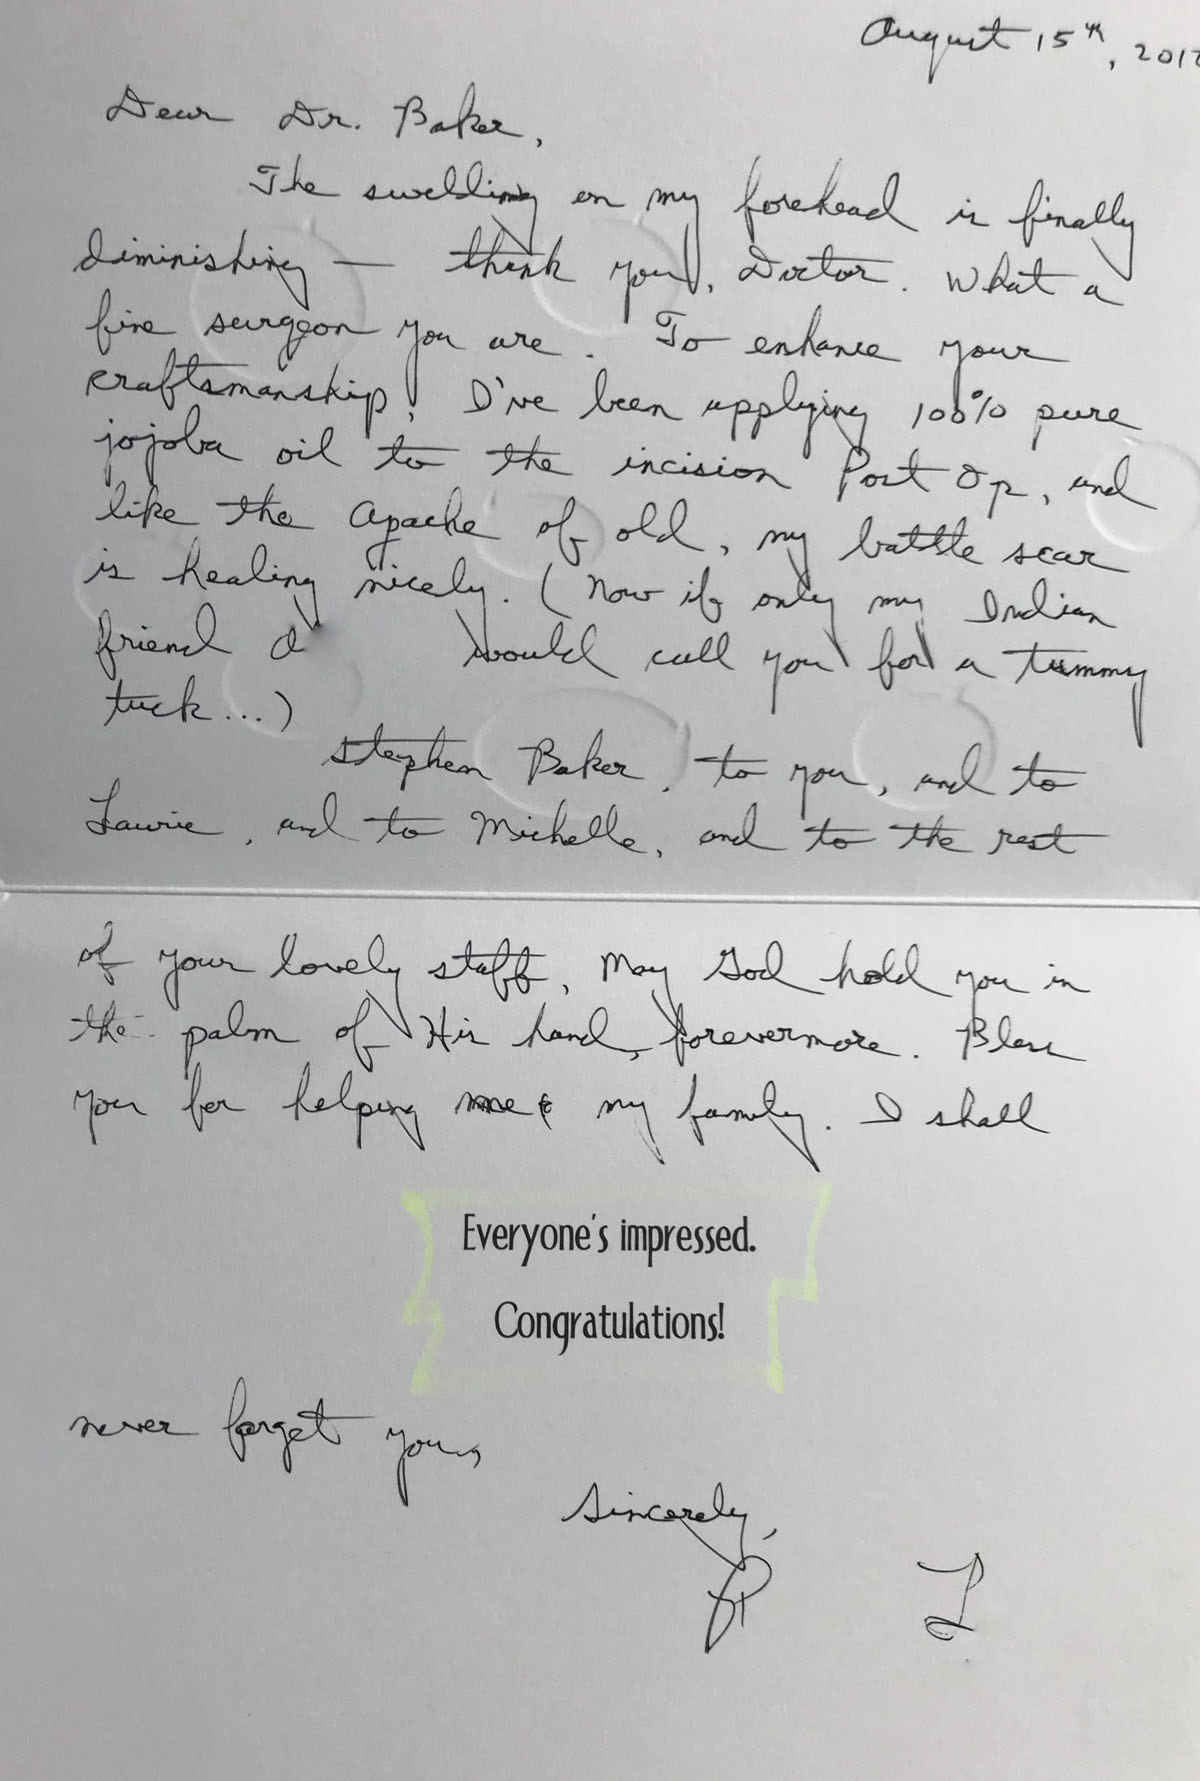 August 15th, 201
Dear Dr. Baker,
The swelling on my forehead is finally
diminishing — thank you, Doctor. What a
fine surgeon you are. To enhance your
craftsmanship, I've been applying 100% pure
jojoba oil to the incision Post Op, and
like the Apache of old, my battle scar
is healing nicely. (Now if only my Indian
friend would call you for a tummy
tuck...)
Stephen Baker, to you, and to
Laurie, and to Michelle, and to the rest
of your lovely staff, May God hold you in
the palm of His hand, forevermore. Bless
you for helping me & my family. I shall
Everyone's impressed.
Congratulations!
never forget you,
Sincerely,
P L